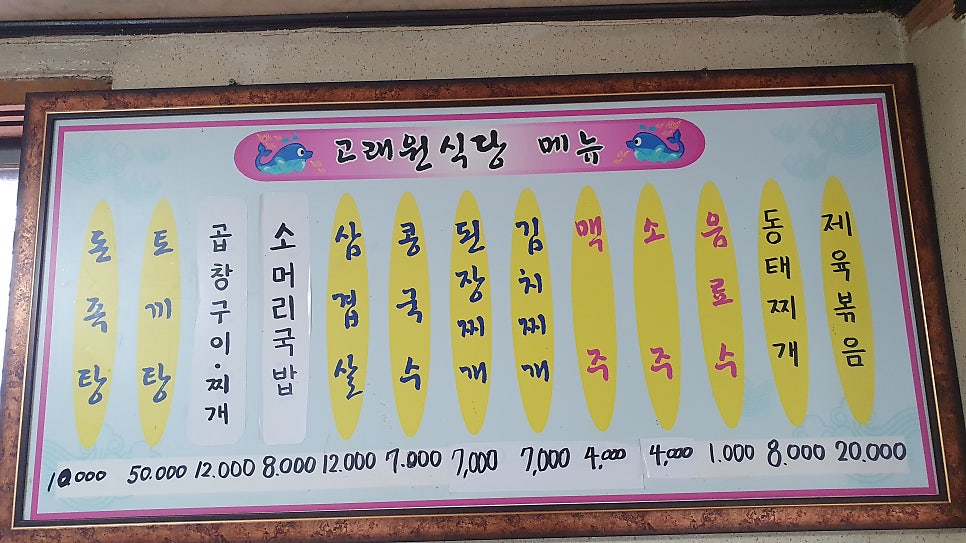 고래원식당 메뉴
돈족탕
토끼탕
곱창구이·찌개
소머리국밥
삼겹살
콩국수
된장찌개
김치찌개
맥주
소주
음료수
동태찌개
제육볶음
10.000 50.000 12.000 8.000 12.000 7.000 7,000 7,000 4,000 4,000 1.000 8.000 20.000